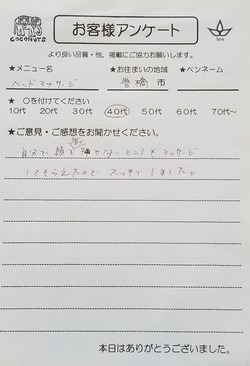 COCONUTS
お客様アンケート
Spa
より良い品質・他、掲載にご協力お願いします。
★メニュー名 ★お住まいの地域 ★ペンネーム
ヘッドマッサージ 豊橋市
★ ○を付けてください
10代 20代 30代 40代 50代 60代 70代〜
★ご意見・ご感想をお聞かせください。
自分で 押せないところをマッサージ
してもらえたので スッキリしました。
本日はありがとうございました。